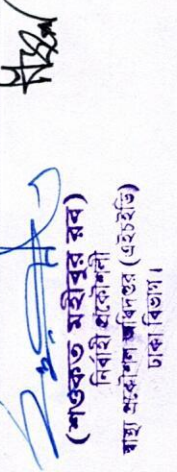 (শওকত মহীবুর রব)
নির্বাহী প্রকৌশলী
স্বাস্থ্য প্রকৌশল অধিদপ্তর (এইচইডি)
ঢাকা বিভাগ।